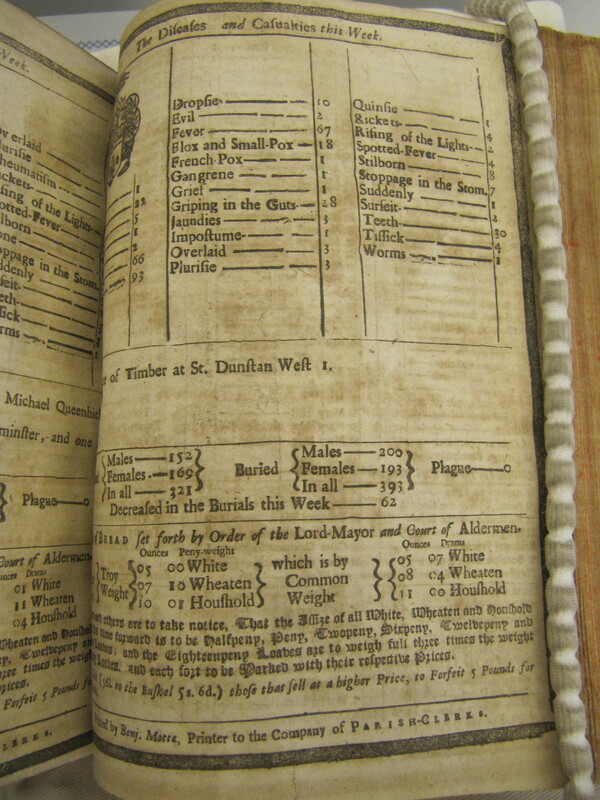 The Diseases and Casualties this Week.
Dropsie 10
Evil 2
Fever 67
Flox and Small-Pox 18
French Pox 1
Gangrene 1
Grief 1
Griping in the Guts 28
Jaundies 3
Impostume 1
Overlaid 3
Plurisie 3
Quinsie 1
Rickets 4
Rising of the Lights 2
Spotted-Fever 4
Stilborn 8
Stoppage in the Stom. 7
Suddenly 1
Surfeit 2
Teeth 30
Tissick 4
Worms 1
1
22
5
1
2
66
93
of Timber at St. Dunstan West 1.
Males 152
Females 169
In all 321
Buried
Males 200
Females 193
In all 393
Plague 0
Decreased in the Burials this Week 62
BREAD set forth by Order of the Lord-Mayor and Court of Aldermen.
Ounces Peny-weight
Troy Weight
05 00 White
07 10 Wheaten
10 01 Houshold
which is by Common Weight
Ounces Drams
05 07 White
08 04 Wheaten
11 00 Houshold
others are to take notice, That the Assize of all White, Wheaten and Houshold
time forward is to be Halfpeny, Peny, Twopeny, Sixpeny, Twelvepeny and
Loaves; and the Eighteenpeny Loaves are to weigh full three times the weight
Loaves, and each sort to be Marked with their respective Prices.
to the Bushel 5s. 6d.) those that sell at a higher Price, to Forfeit 5 Pounds for
by Benj. Motte, Printer to the Company of PARISH-CLERKS.
Week.
erlaid
urisie
heumatism
ickets
sing of the Lights
potted-Fever
ilborn
one
oppage in the Stom.
ddenly
rfeit
eeth
sick
rms
Michael Queenhi
minster, and one
Plague 0
Court of Aldermen.
unces Drams
01 White
11 Wheaten
04 Houshold
Wheaten and Houshold
Twelvepeny and
three times the weight
rices.
Forfeit 5 Pounds for
LERKS.